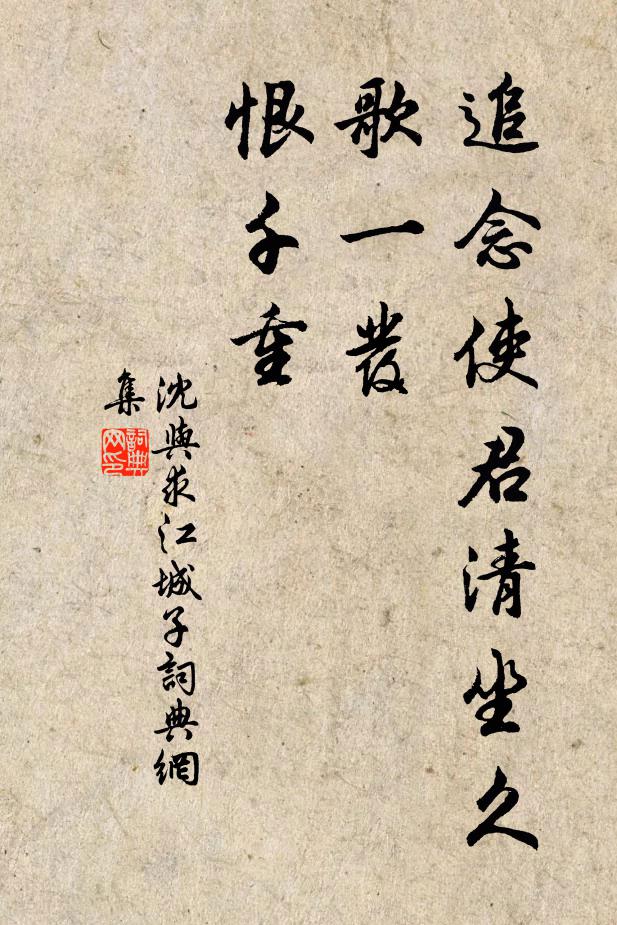 追念使君清坐久
歌一發
恨千重
沈與求江城子詞典網
集
詞典
网印